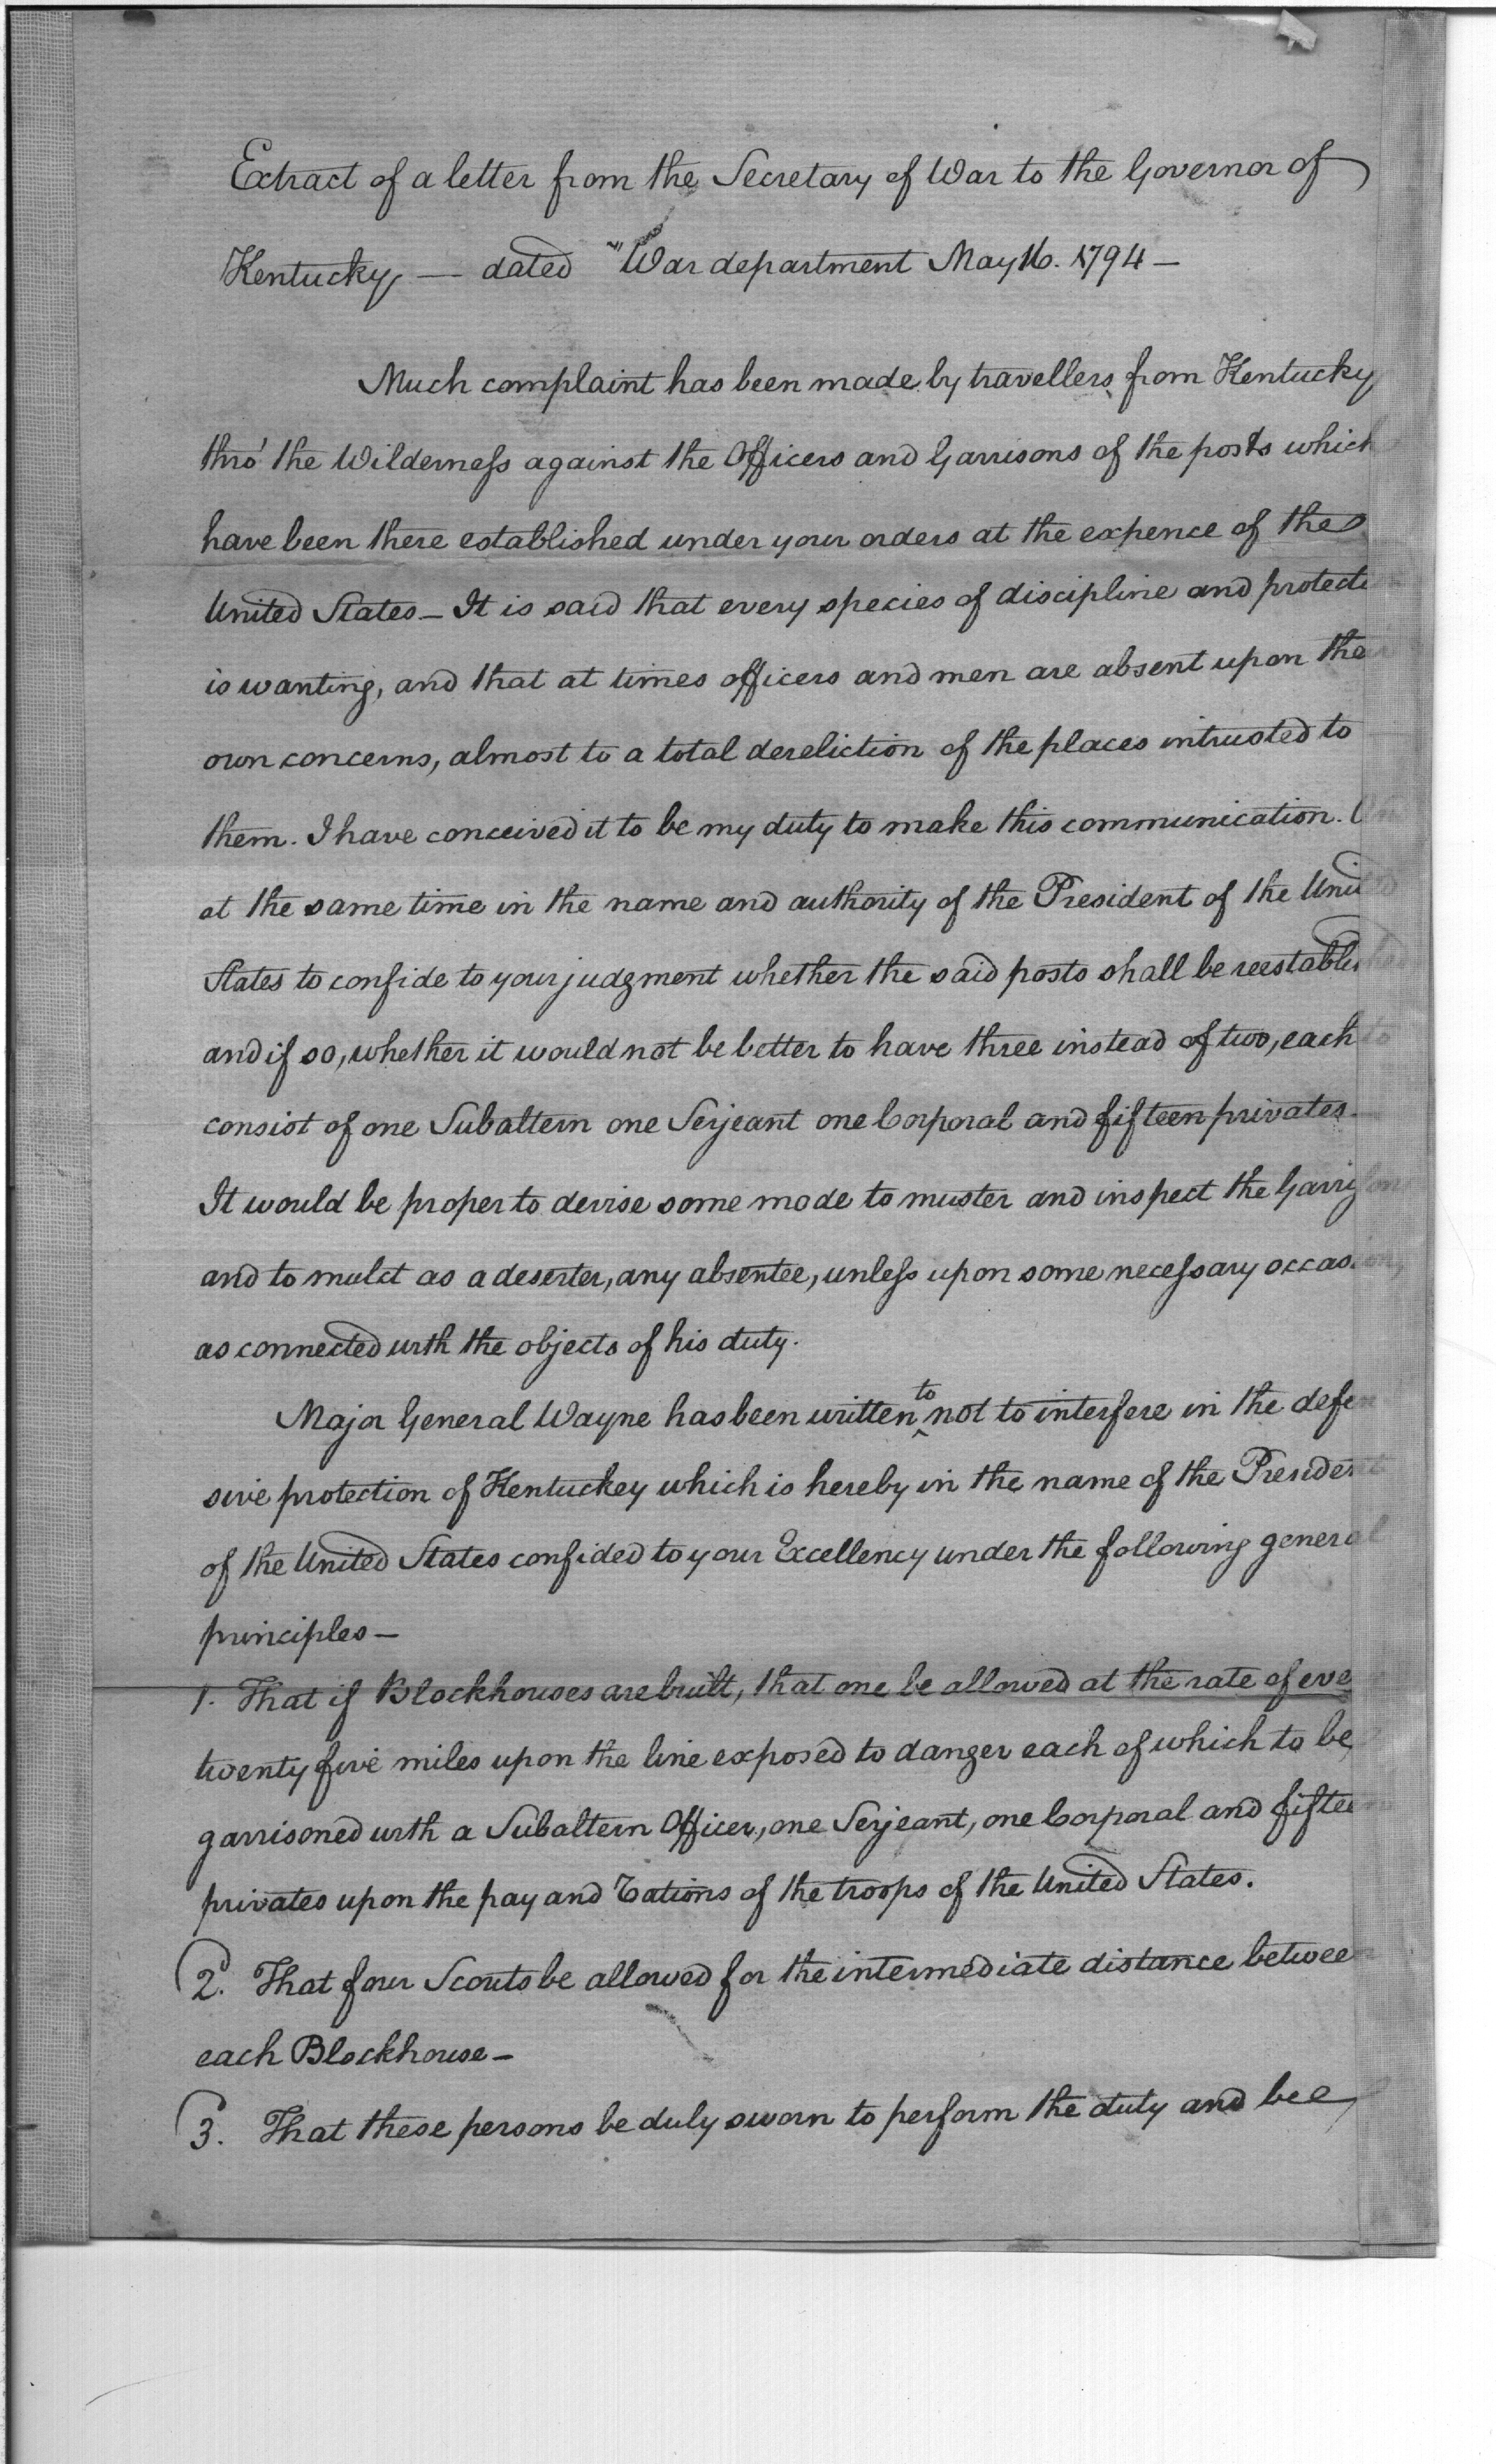 Extract of a letter from the Secretary of War to the Governor of
Kentucky, — dated "War department May 16. 1794 —
Much complaint has been made by travellers from Kentucky
thro' the Wilderness against the Officers and Garrisons of the posts which
have been there established under your orders at the expence of the
United States — It is said that every species of discipline and protecti
is wanting, and that at times officers and men are absent upon their
own concerns, almost to a total dereliction of the places intrusted to
them. I have conceived it to be my duty to make this communication.
at the same time in the name and authority of the President of the United
States to confide to your judgment whether the said posts shall be reestablished
and if so, whether it would not be better to have three instead of two, each to
consist of one Subaltern one Serjeant one Corporal and fifteen privates —
It would be proper to devise some mode to muster and inspect the Garrisons
and to mulct as a deserter, any absentee, unless upon some necessary occasion,
as connected with the objects of his duty.
Major General Wayne has been written to not to interfere in the defen
sive protection of Kentuckey which is hereby in the name of the President
of the United States confided to your Excellency under the following general
principles —
1. That if Blockhouses are built, that one be allowed at the rate of eve
twenty five miles upon the line exposed to danger each of which to be
garrisoned with a Subaltern Officer, one Serjeant, one Corporal and fifteen
privates upon the pay and rations of the troops of the United States.
2. That four Scouts be allowed for the intermediate distance between
each Blockhouse —
3. That these persons be duly sworn to perform the duty and bee